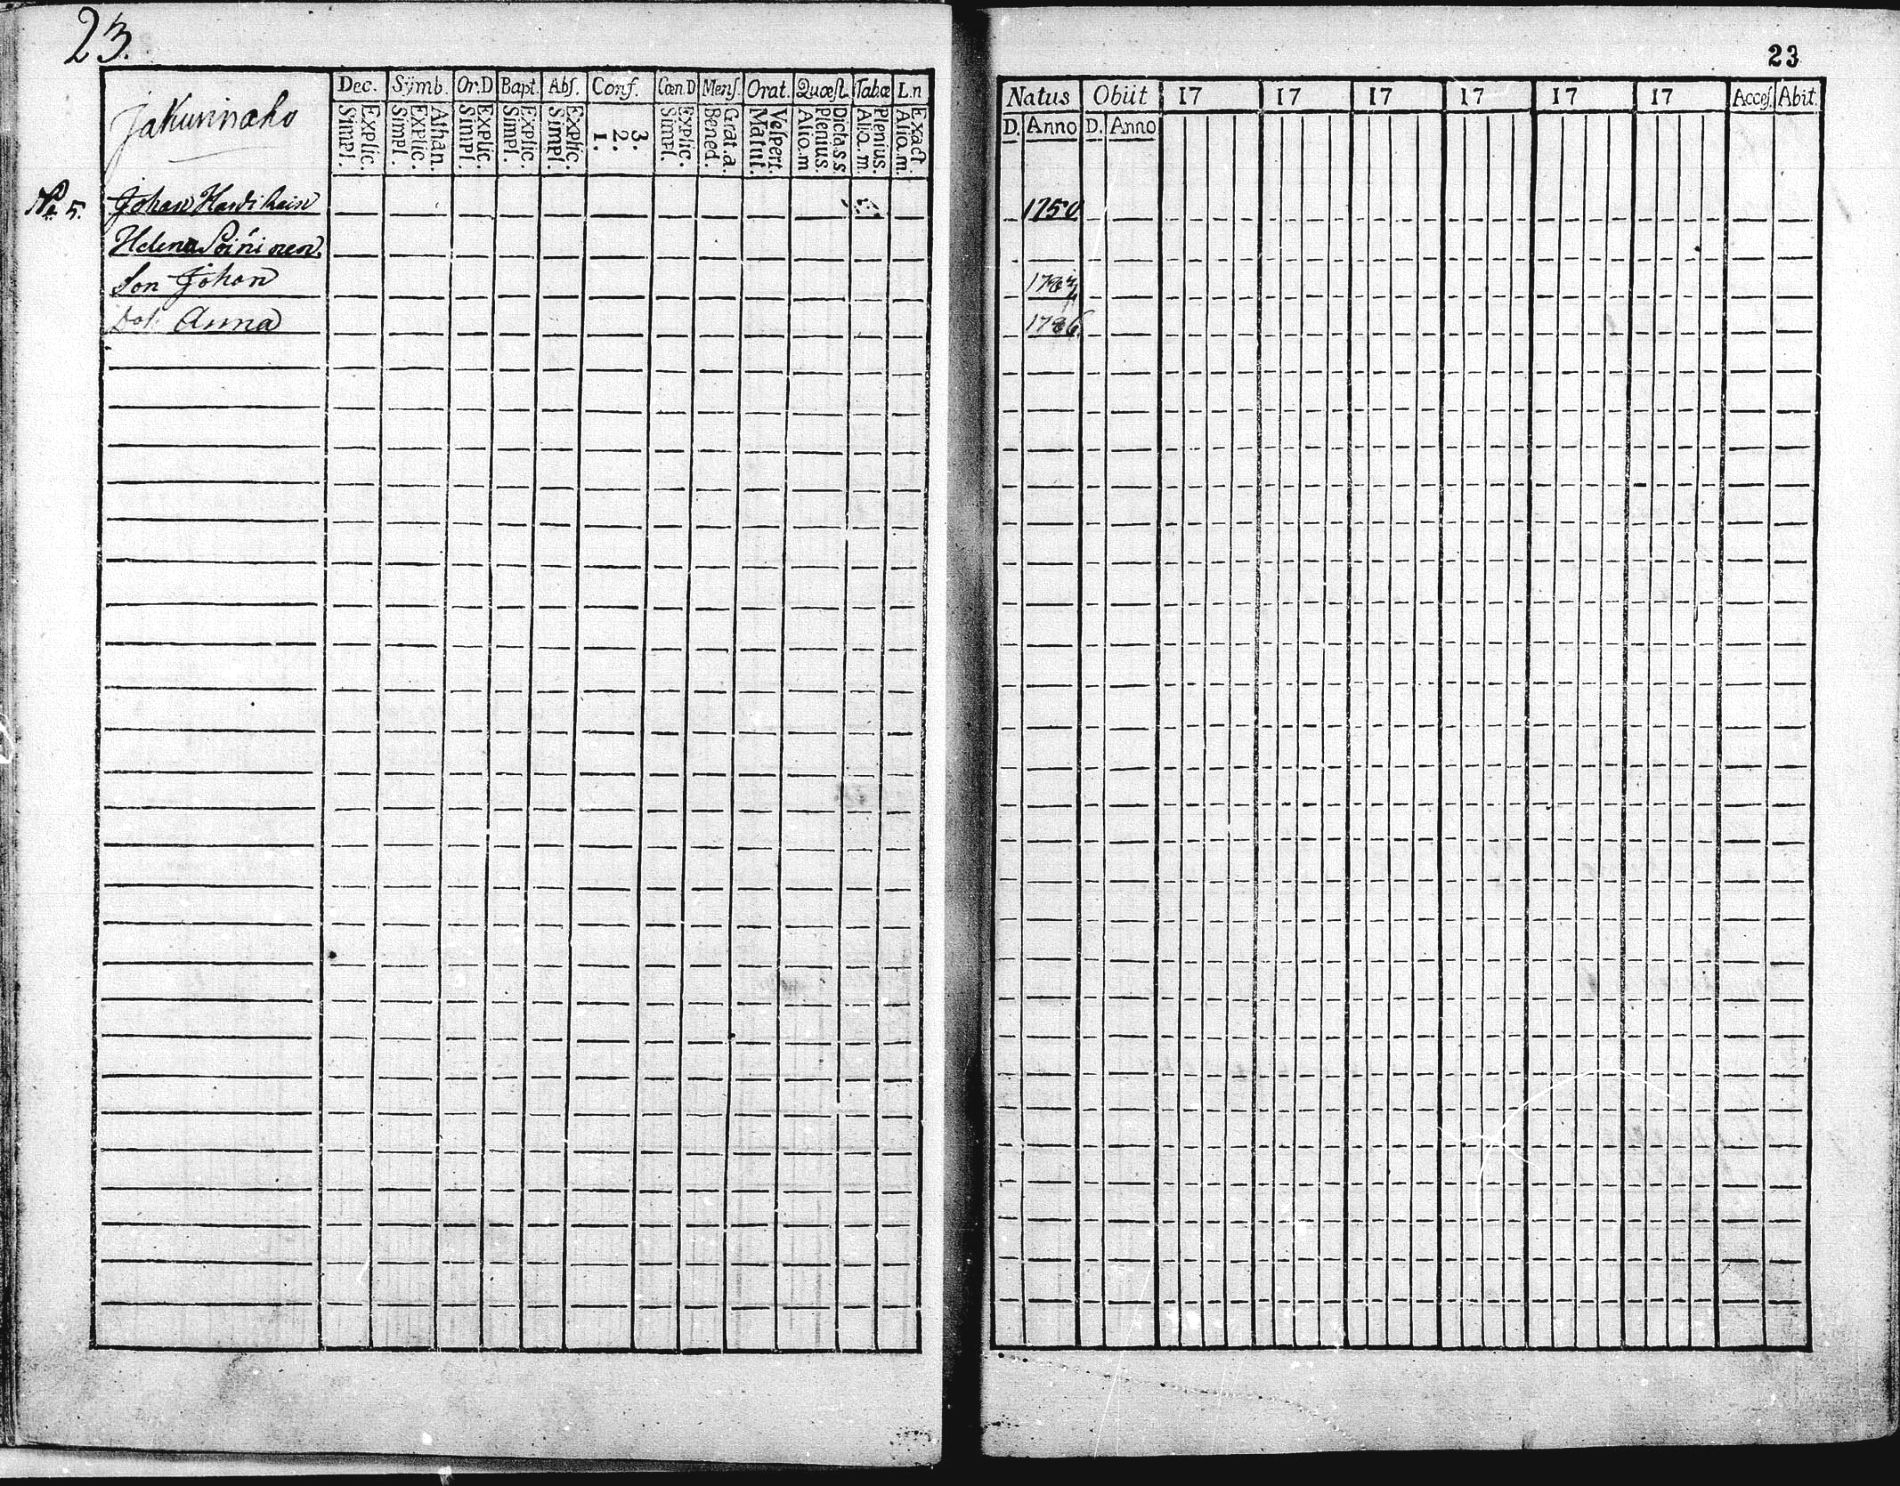 23.
Jakunnaho
Dec. Sÿmb. Or.D Bapt. Abſ. Conf. Cœn.D Menſ. Orat. Quæſt. Tabæ L.n
Explic. Simpl. Athan. Explic. Simpl. Explic. Simpl. Explic. Simpl. Explic. Simpl. 3. 2. 1. Explic. Simpl. Grat.a. Bened. Veſpert. Matut. Dicta SS. Plenius. Alio.m Plenius. Alio.m. Exact. Alio.m.
No 5. Johan Hardikain
Helena Soininen
Son Johan
Dot. Anna
23
Natus Obiit 17 17 17 17 17 17 Acceſ. Abit.
D. Anno D. Anno
1750
1786